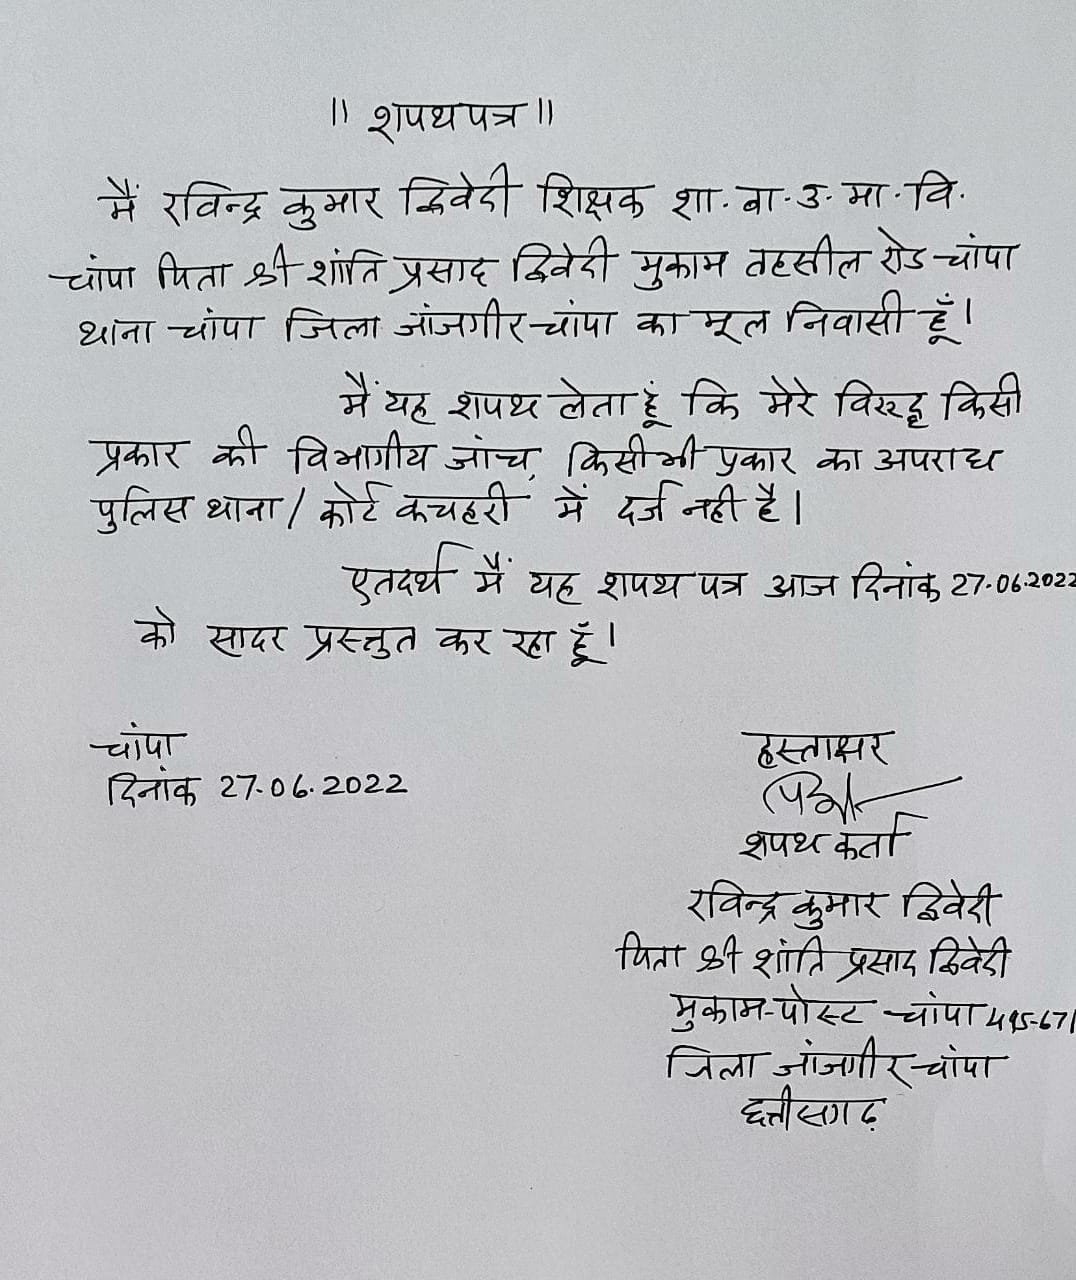 ॥ शपथपत्र ॥
मैं रविन्द्र कुमार द्विवेदी शिक्षक शा. बा. उ. मा. वि.
चांपा पिता श्री शांति प्रसाद द्विवेदी मुकाम तहसील रोड चांपा
थाना चांपा जिला जांजगीर-चांपा का मूल निवासी हूँ।
मैं यह शपथ लेता हूं कि मेरे विरुद्ध किसी
प्रकार की विभागीय जांच, किसी भी प्रकार का अपराध
पुलिस थाना / कोर्ट कचहरी में दर्ज नही है।
एतदर्थ मैं यह शपथ पत्र आज दिनांक 27.06.2022
को सादर प्रस्तुत कर रहा हूँ।
चांपा
दिनांक 27.06.2022
हस्ताक्षर
शपथ कर्ता
रविन्द्र कुमार द्विवेदी
पिता श्री शांति प्रसाद द्विवेदी
मुकाम-पोस्ट चांपा 495-671
जिला जांजगीर-चांपा
छत्तीसगढ़